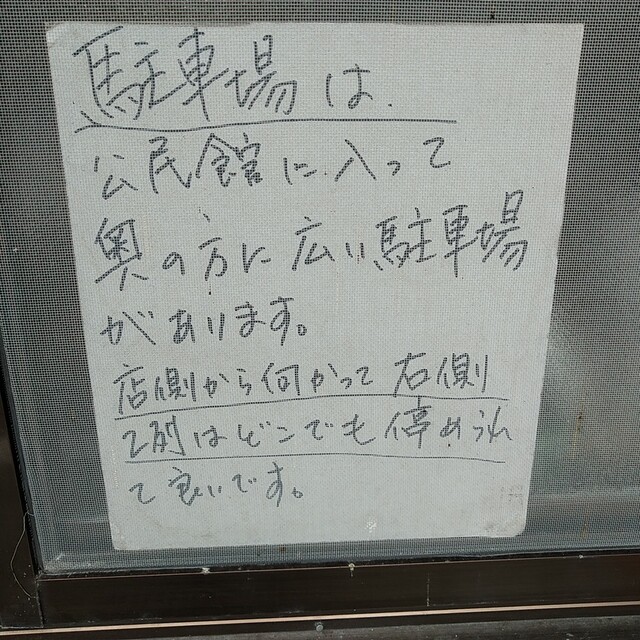 駐車場は
公民館に入って
奥の方に広い駐車場
があります。
店側から何かって右側
2列はどこでも停められ
て良いです。